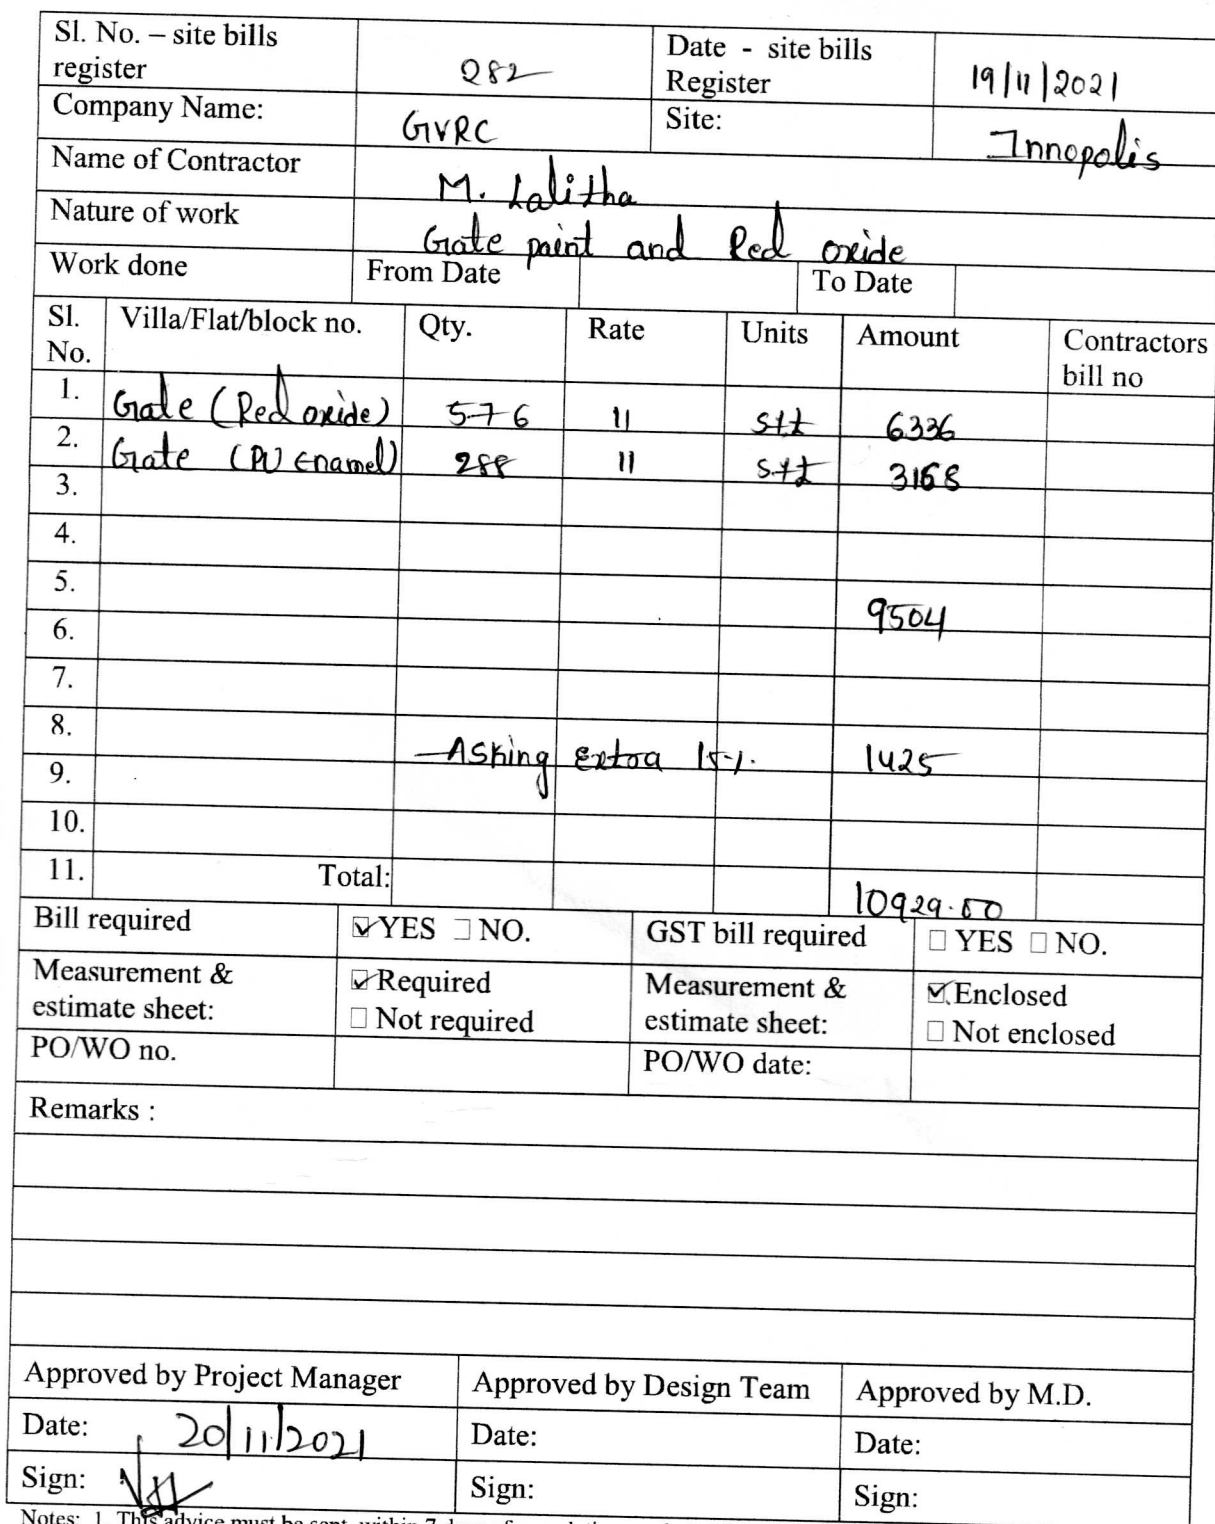 Sl. No. – site bills register 282 Date - site bills Register 19/11/2021
Company Name: GVRC Site: Innopolis
Name of Contractor M. Lalitha
Nature of work Gate paint and Red oxide
Work done From Date To Date
Sl. No. Villa/Flat/block no. Qty. Rate Units Amount Contractors bill no
1. Gate (Red oxide) 576 11 sft 6336
2. Gate (PU Enamel) 288 11 sft 3168
3.
4.
5. 9504
6.
7.
8. Asking Extra 15% 1425
9.
10.
11. Total: 10929.00
Bill required YES NO. GST bill required YES NO.
Measurement & estimate sheet: Required Not required Measurement & estimate sheet: Enclosed Not enclosed
PO/WO no. PO/WO date:
Remarks :
Approved by Project Manager Approved by Design Team Approved by M.D.
Date: 20/11/2021 Date: Date:
Sign: Sign: Sign:
Notes: 1. This advice must be sent within 7 days